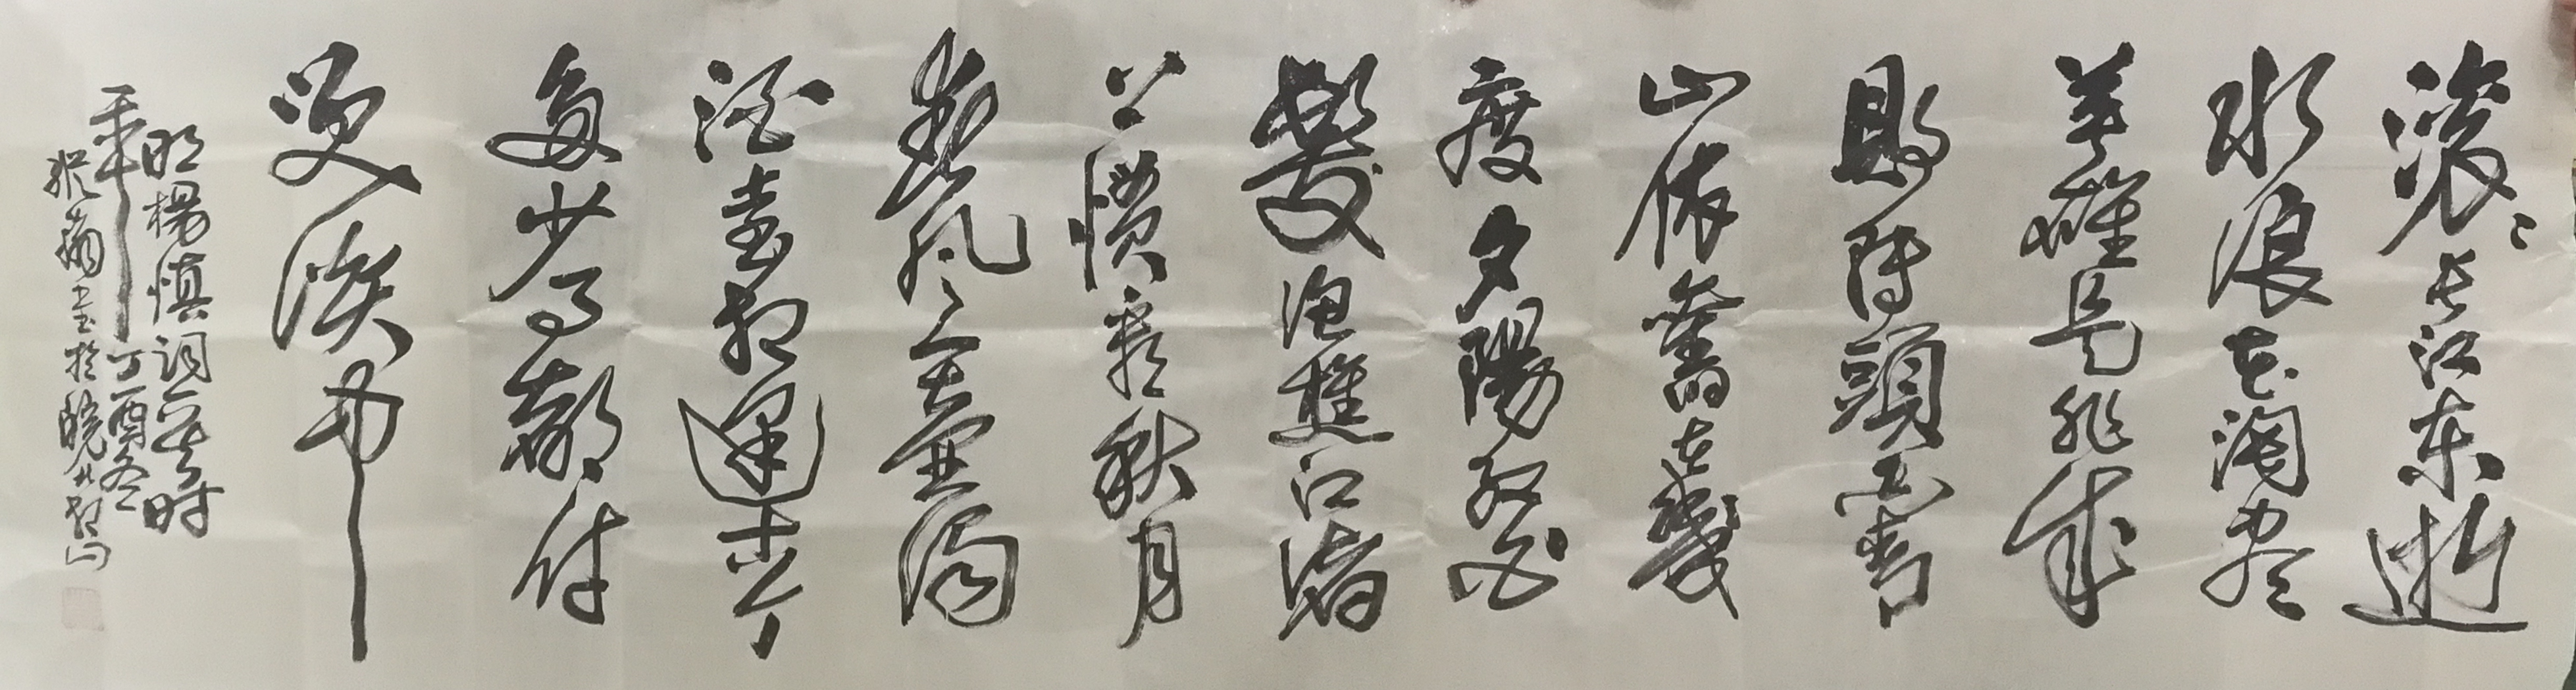 滚滚长江东逝
水浪花淘尽
英雄是非成
敗转頭空青
山依舊在幾
度夕陽红白
髮渔樵江渚
上慣看秋月
春风一壶濁
酒喜相逢古今
多少事都付
笑谈中
明楊慎词一首时
丁酉冬
书於